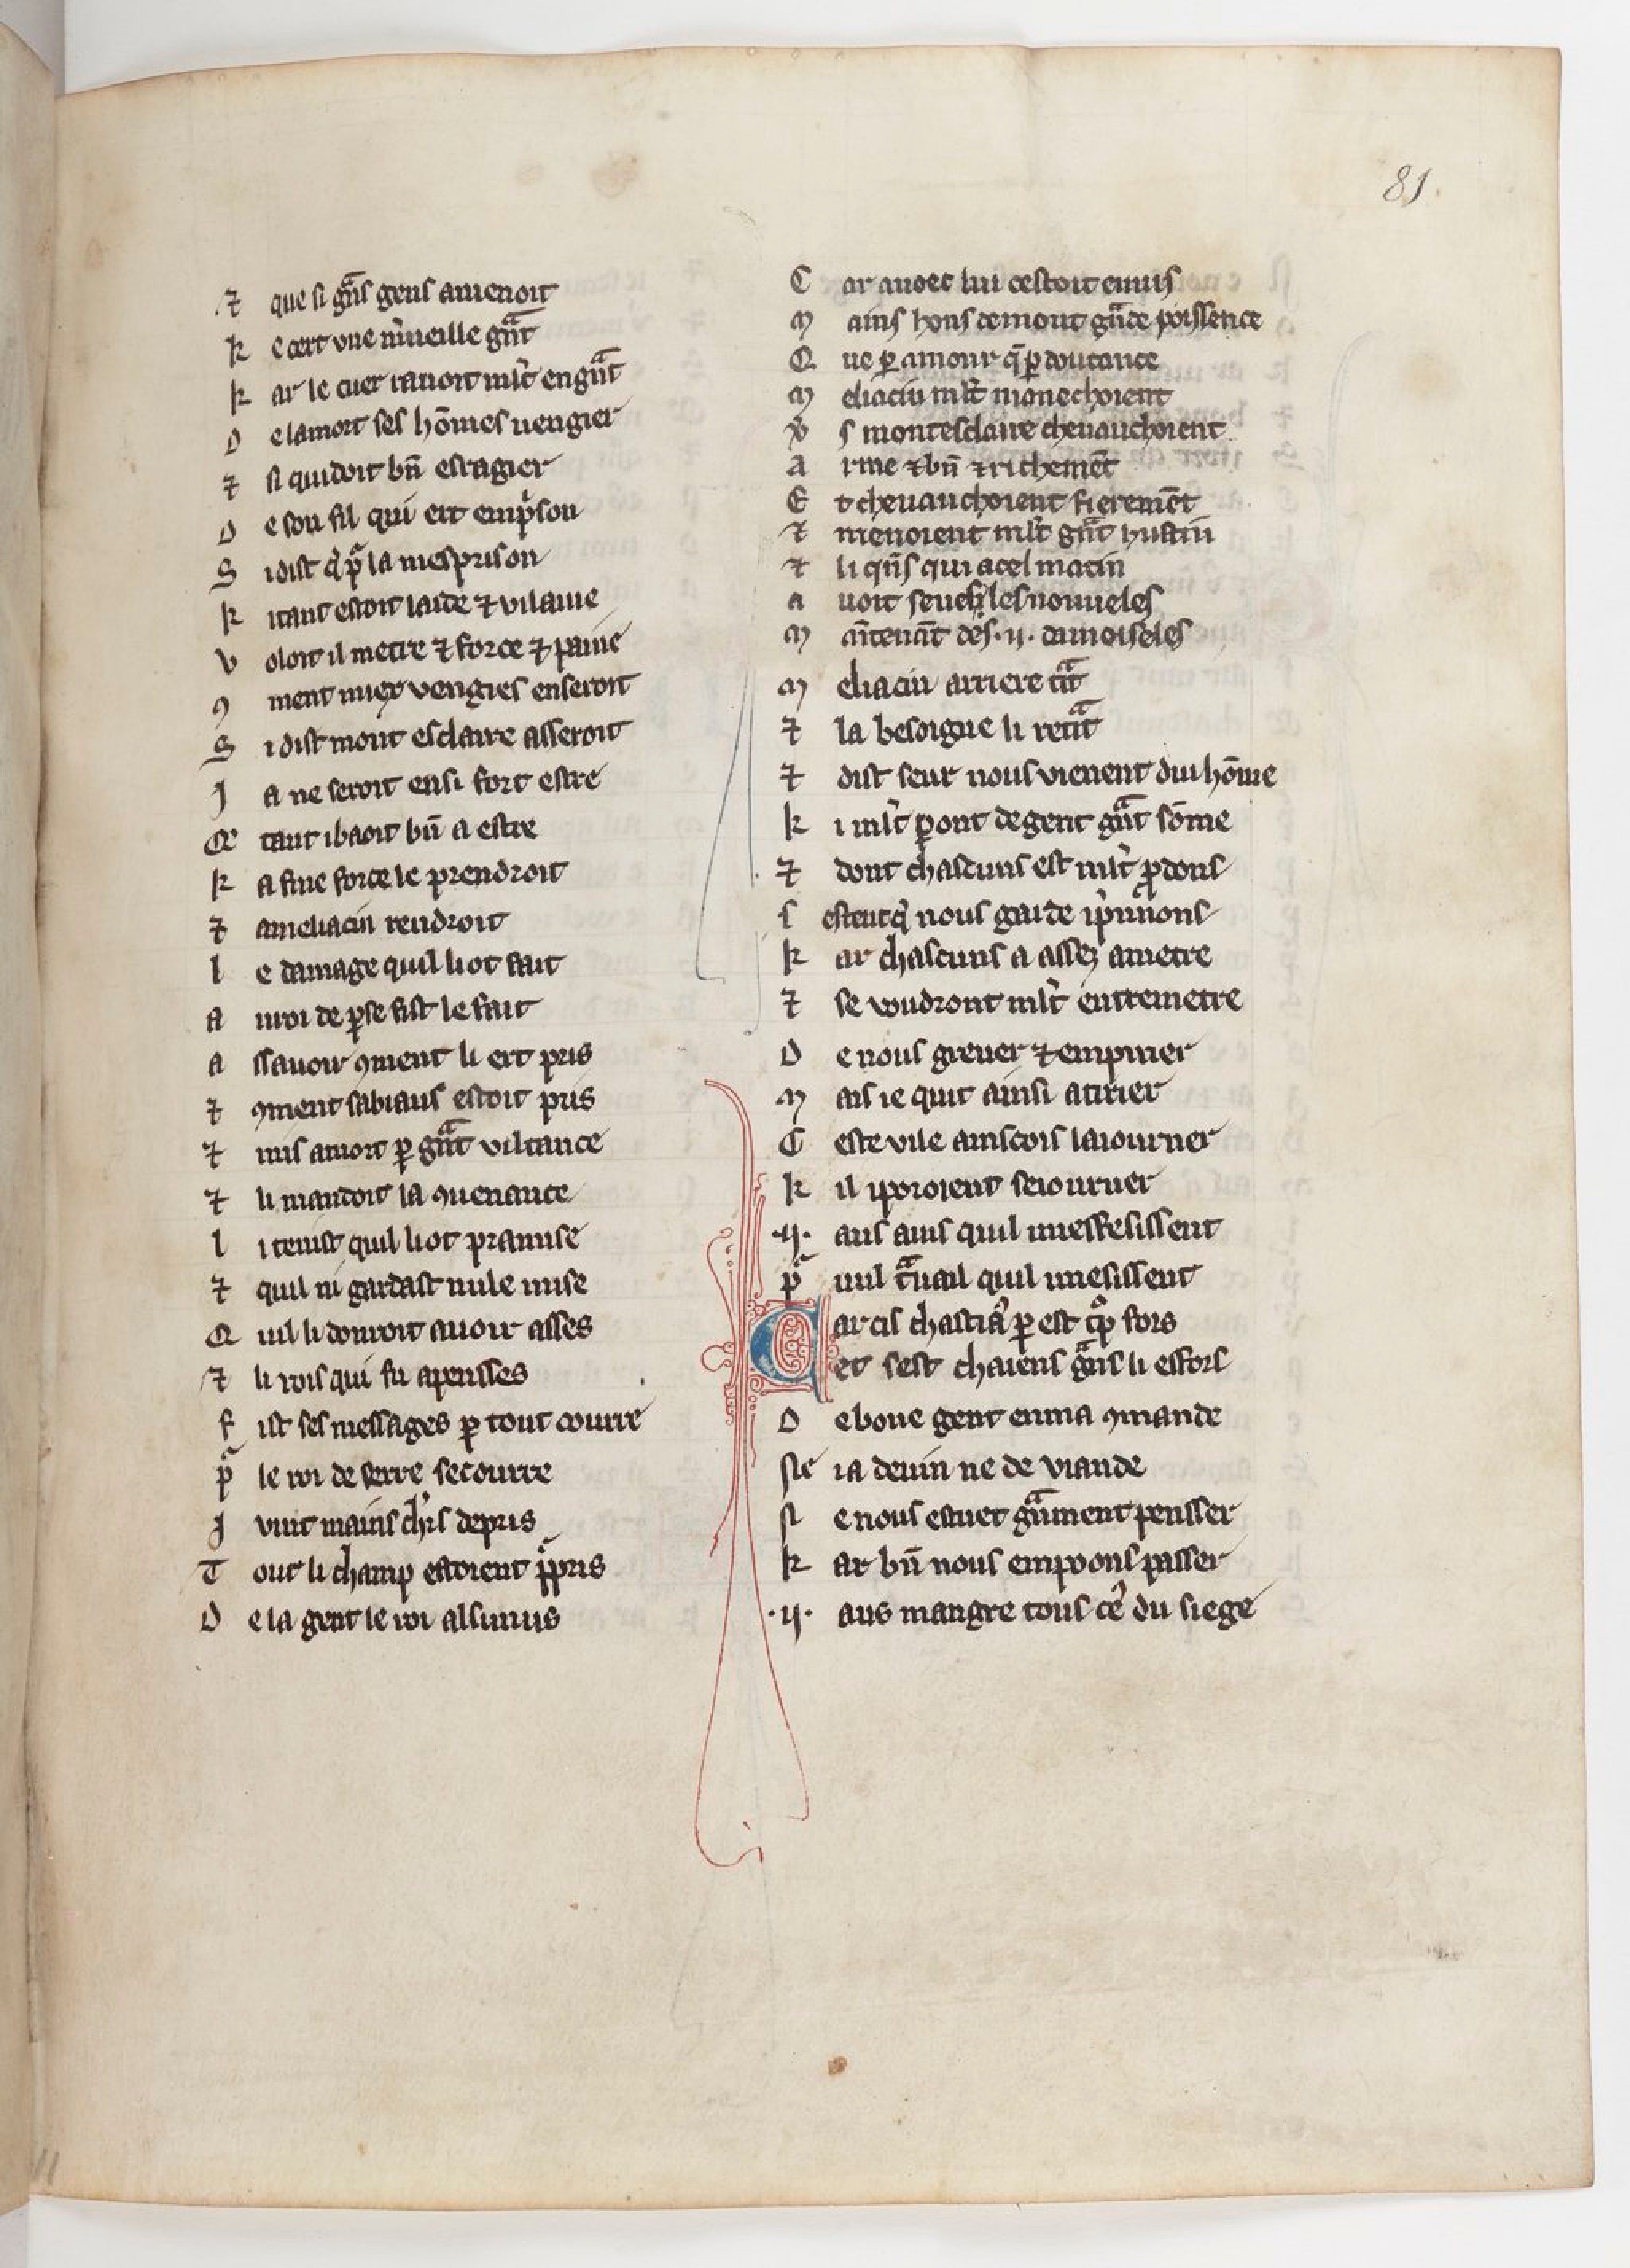 81.
⁊ que si gͣns gens amenoit
k e cert vne mͥueille gnͣt
k ar le cuer rauoit ml̃t en gnͣt
D e la mort ses hõmes uengier
⁊ si quidoit bn̄ esragier
D e son fil qui ert empͥson
S i dist qͥ pͣ la mesprison
k i tant estoit laide ⁊ vilaine
V oloit il metre ⁊ force ⁊ paine
ꝯ ment miex vengies en seroit
S i dist mont esclaire asseroit
J a ne seroit ensi fort estre
Q̃ tant i baoit bn̄ a estre
k a fine force le prendroit
⁊ a meliacin rendroit
l e damage quil li ot fait
A u roi de ꝑse fist le fait
A ssauoir ꝯment li ert pris
⁊ ꝯment sabiaus estoit pris
⁊ mis auoit ꝑ gnͣt viltance
⁊ li mandoit la ꝯuenance
l i tenist quil li ot pramise
⁊ quil ni gardast nule mise
Q uil li donroit auoir asses
⁊ li rois qui fu apensses
F ist ses messages ꝑ tout courre
pͣ le roi de serre secourre
J vint mains chr̃s de pris
T out li champ estoient pͥpris
D e la gent le roi alsimus
C ar auoec lui cestoit emus
M ains hons de mout gͣnde poissence
Q ue ꝑ amour q̃ ꝑ doutance
M eliacin ml̃t manechoient
V̾ s montesclaire cheuauchoient
A rme ⁊ bn̄ ⁊ richemẽt
E t cheuauchoient fieremẽt
⁊ menoient ml̃t gnͣt hustin
⁊ li qñs qui a cel matin
A uoit seues les nouueles
M ãtenãt des .ij. damoiseles
M eliacin arriere tͣit
⁊ la besoigne li retͣit
⁊ dist seur nous vienent dui hõme
k i ml̃t ꝑ ont de gent gnͣt sõme
⁊ dont chascuns est ml̃t ꝓdons
S esteut qͥ nous garde i pͥnnons
k ar chascuns a assez a metre
⁊ se voudront ml̃t entremetre
D e nous greuer ⁊ empirier
M ais ie quit ainsi atirier
C este vile ainscois laiourner
k il i poroient seiourner
.ij. ans ains quil mesfesissent
pͣ nul tͣuail quil i mesissent
C ar cis chastiã ꝑ est tͦp fors
et sest chaiens gͣns li esfors
D e bone gent en ma ꝯmande
Ne ia de uin ne de viande
N e nous estuet gͣnment pensser
k ar bn̄ nous em poons passer
.ij. ans maugre tous ceͬ du siege